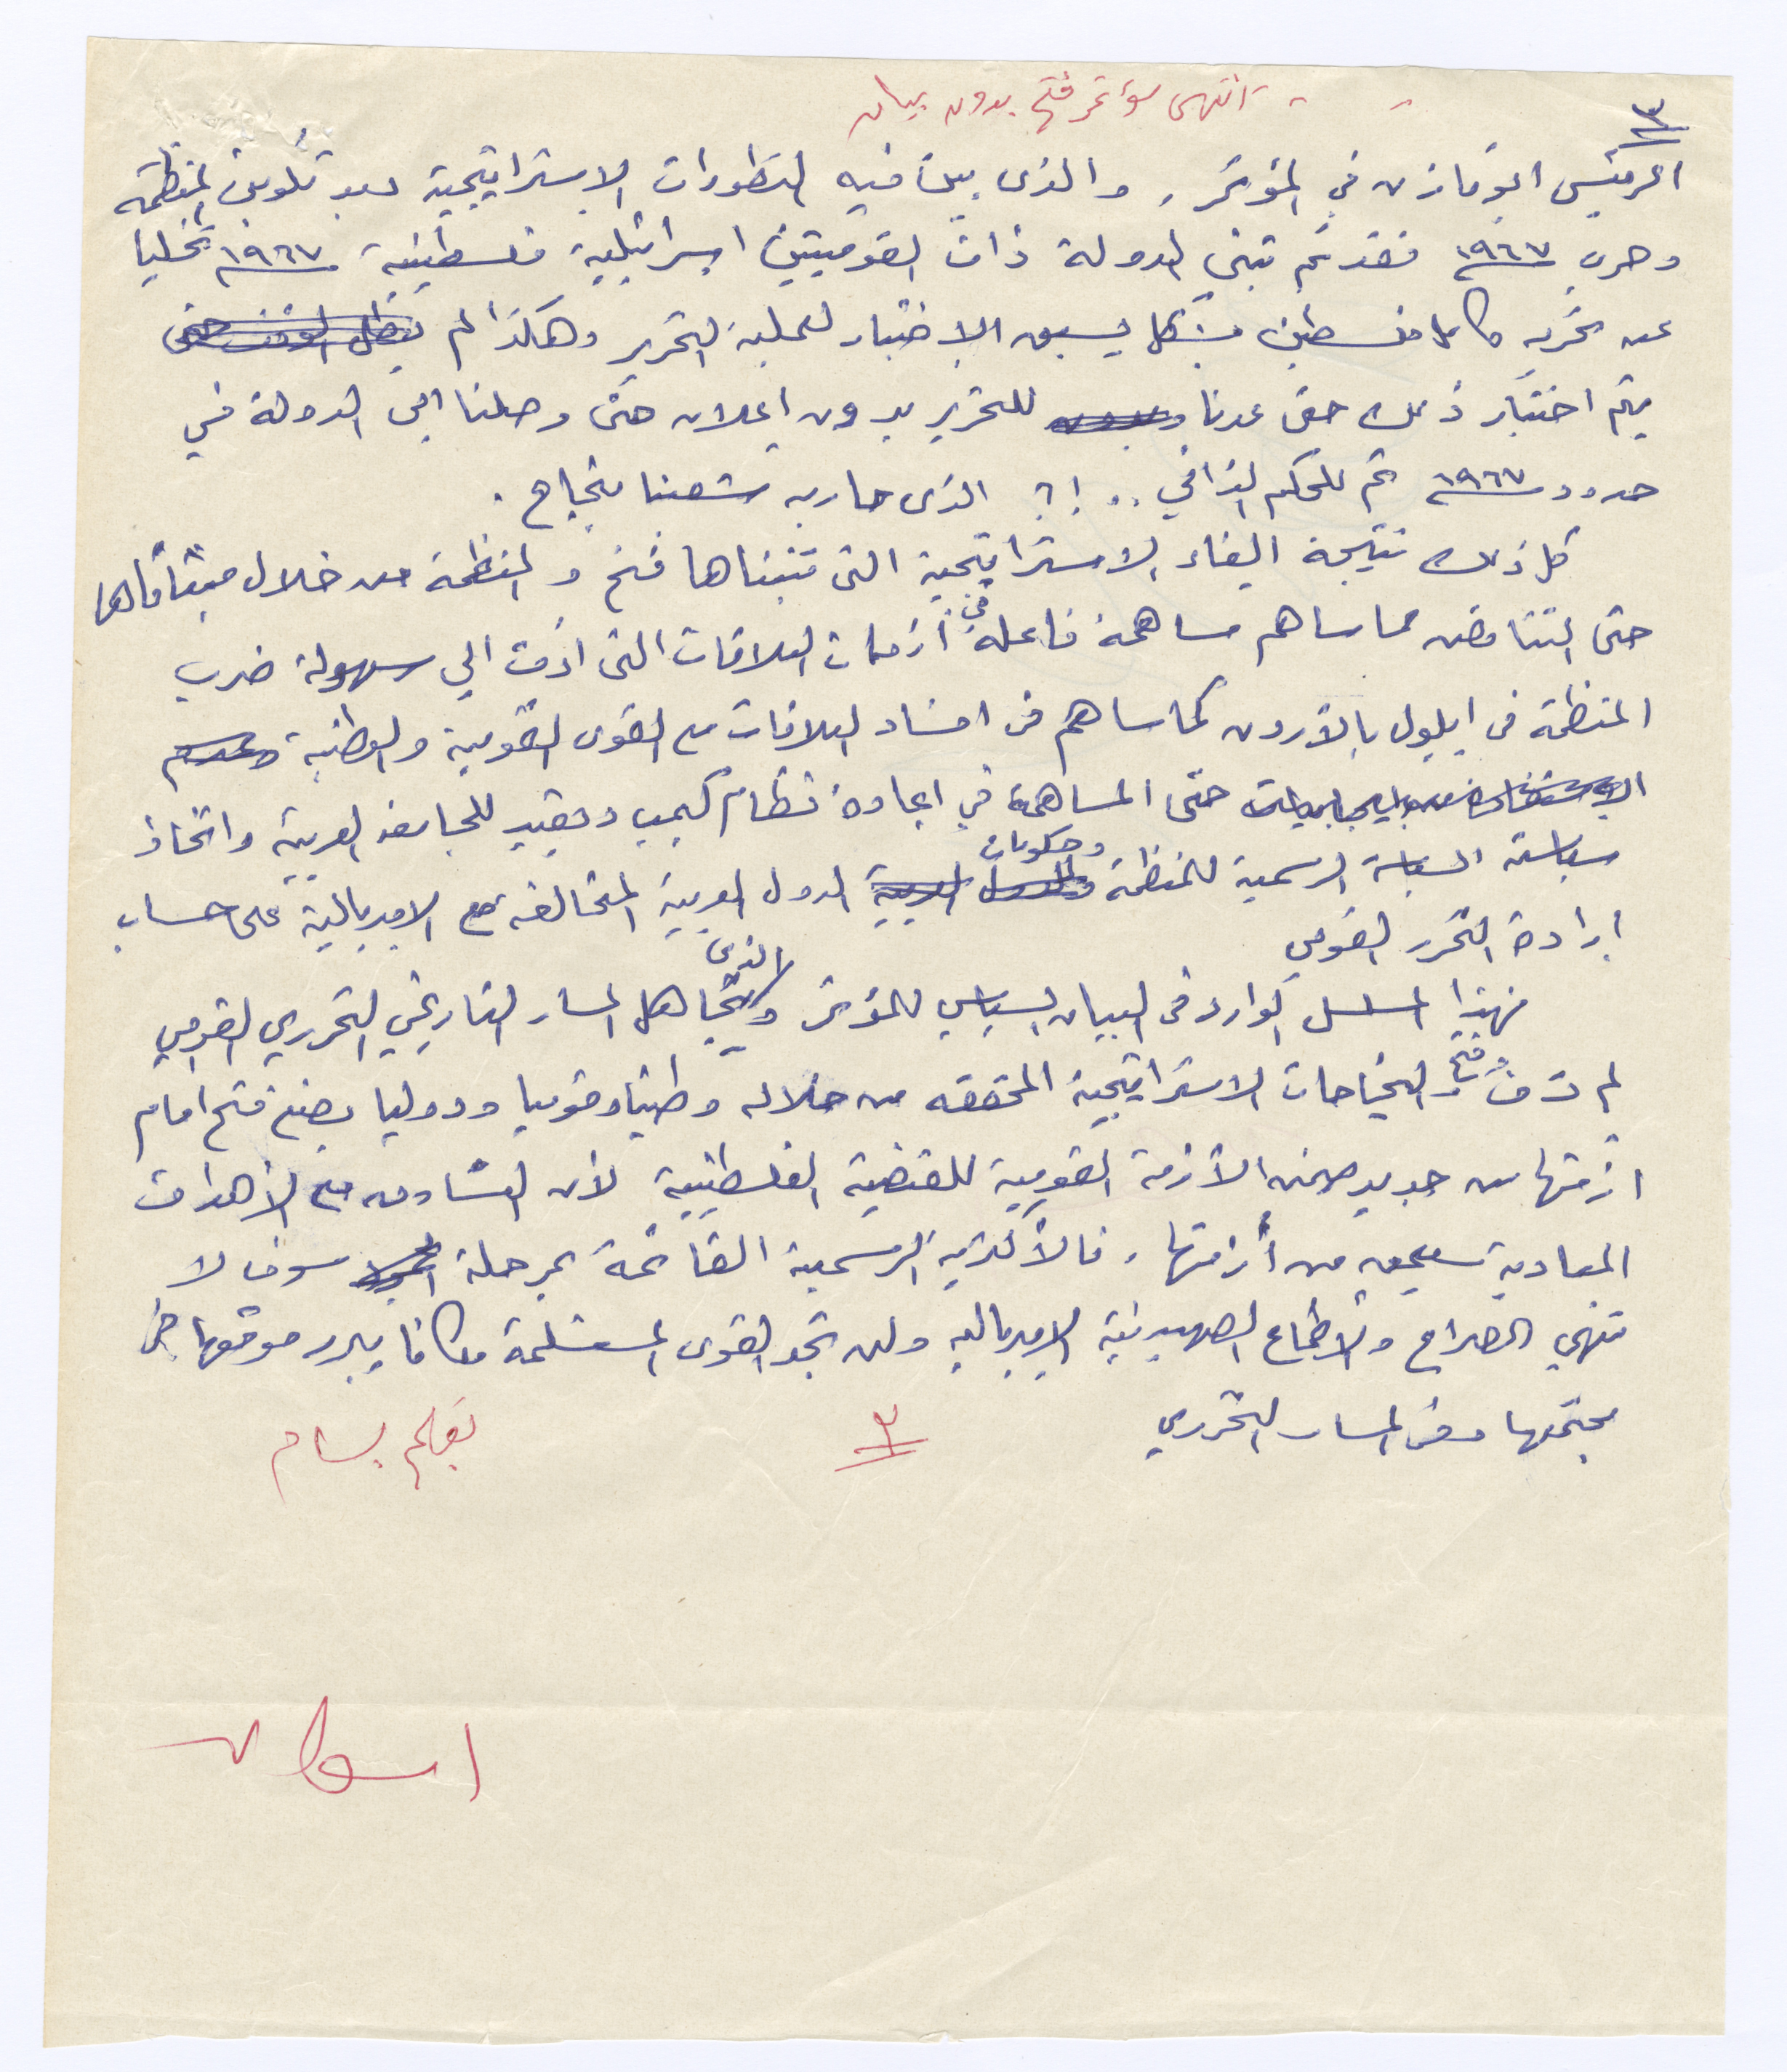 - - انتهى مؤتمر فتح بدون بيان
٣
الرئيس ابو مازن في المؤتمر ، والذى بيّن فيه التطورات الاستراتيجية بعد تكوين المنظمة
وحرب ١٩٦٧ فقد تم تبني الدولة ذات القوميتين اسرائيلية فلسطينية ١٩٦٧ تخليا
عن تحرير كامل فلسطين بشكل يسبق الاختبار لعملية التحرير وهكذا لم
يتم اختبار ذلك حتى عدنا للتحرير بدون اعلان حتى وصلنا الى الدولة في
حدود ١٩٦٧ ثم للحكم الذاتي .. ! ؟ الذى حاربه شعبنا بنجاح .
كل ذلك نتيجة الغاء الاستراتيجية التى تتبناها فتح والمنظمة من خلال ميثاقها
حتى التناقض مما ساهم مساهمة فاعلة في أزمات العلاقات التى ادت الي سهولة ضرب
المنظمة فى ايلول بالأردن كما ساهم فى افساد العلاقات مع القوى القومية والوطنية
حتى المساهمة في اعادة نظام كيمب ديفيد للجامعة العربية واتخاذ
سياسة السياسة الرسمية للمنظمة وحكومات الدول العربية المتحالفة مع الامبريالية على حساب
ارادة التحرر القومي
فهذا المسلسل الوارد فى البيان السياسي للمؤتمر والذي يتجاهل المسار التاريخي التحرري القومي
لم تر فتح النجاحات الاستراتيجية المحققه من خلاله وطنيا وقوميا ودوليا يضع فتح امام
ازمتها من جديد ضمن الأزمة القومية للقضية الفلسطينية لأن التساوق مع الأهداف
المعادية سيعمق من أزمتها ، فالأكثرية الرسمية القائمة بمرحلة سوف لا
تنهي الصراع والاطماع الصهيونية الامبريالية ولن تجد القوى المستسلمة مكانا يبرر موقعها في
مجتمعها وفى المسار التحرري
٣
بقلم بسام